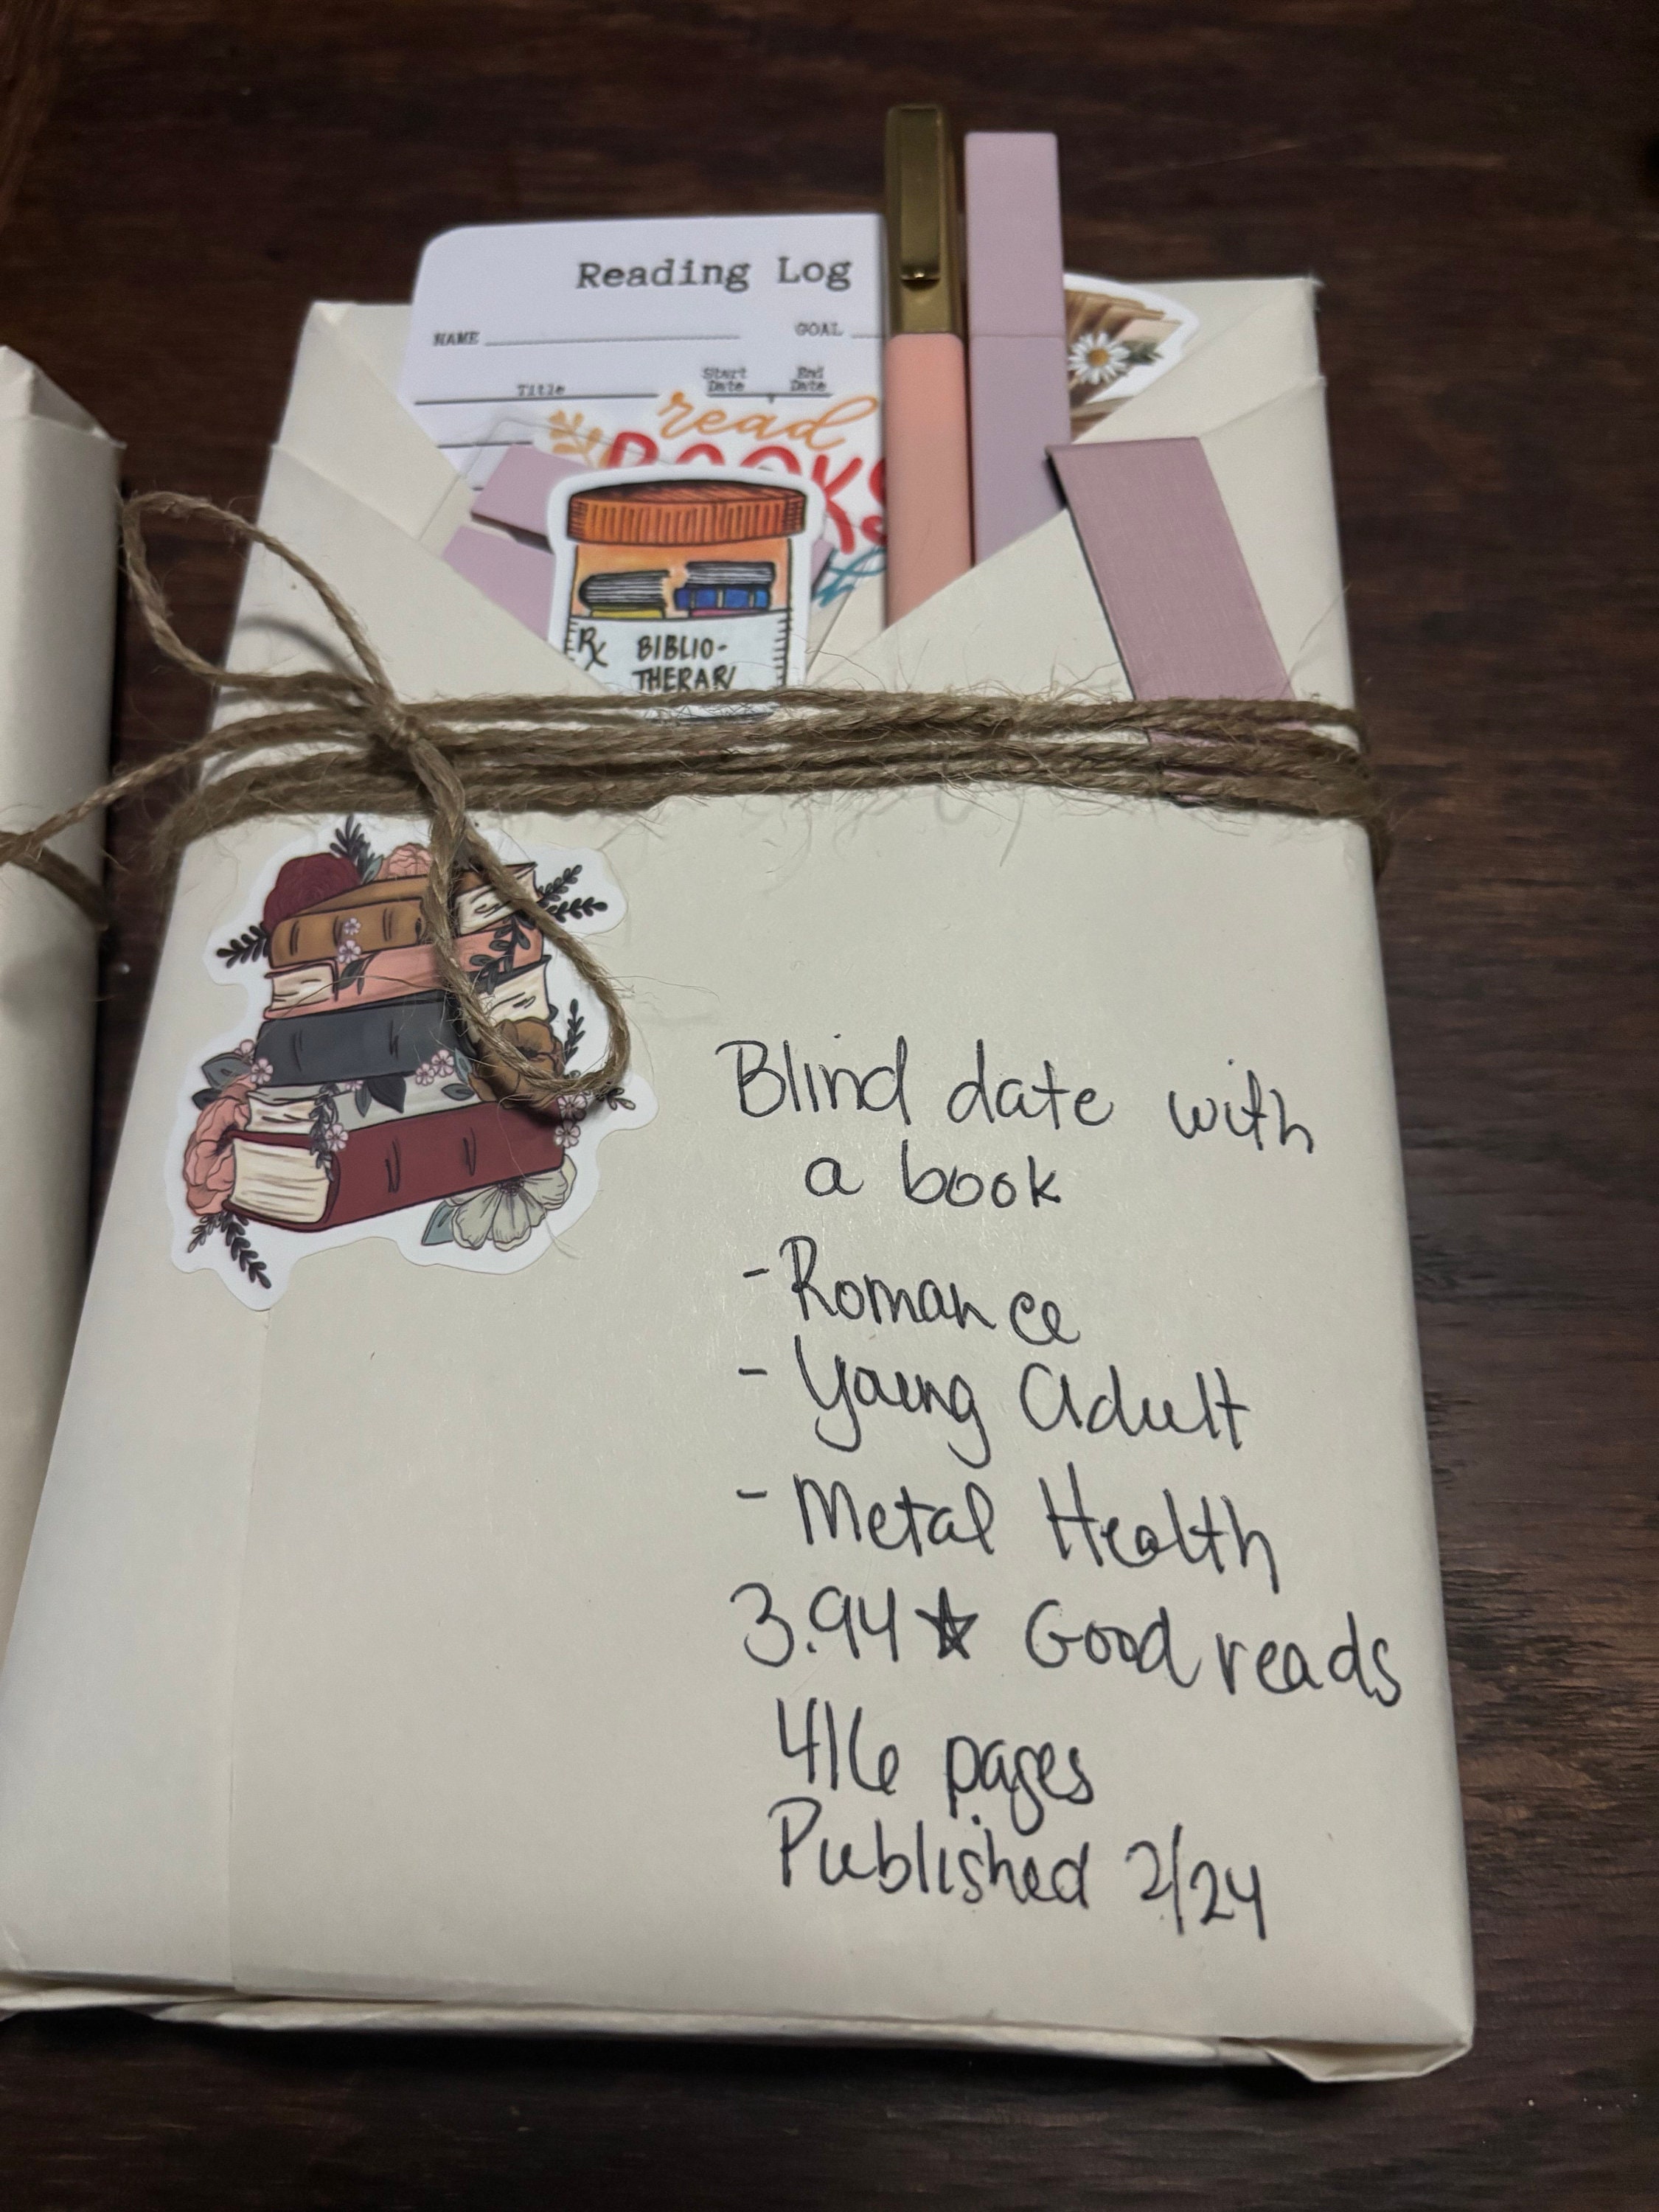 Reading Log
NAME GOAL
Title Start Date End Date
read
BOOKS
Rx BIBLIO-
THERAPY
Blind date with
a book
- Romance
- Young Adult
- Metal Health
3.94★ Goodreads
416 pages
Published 2/24